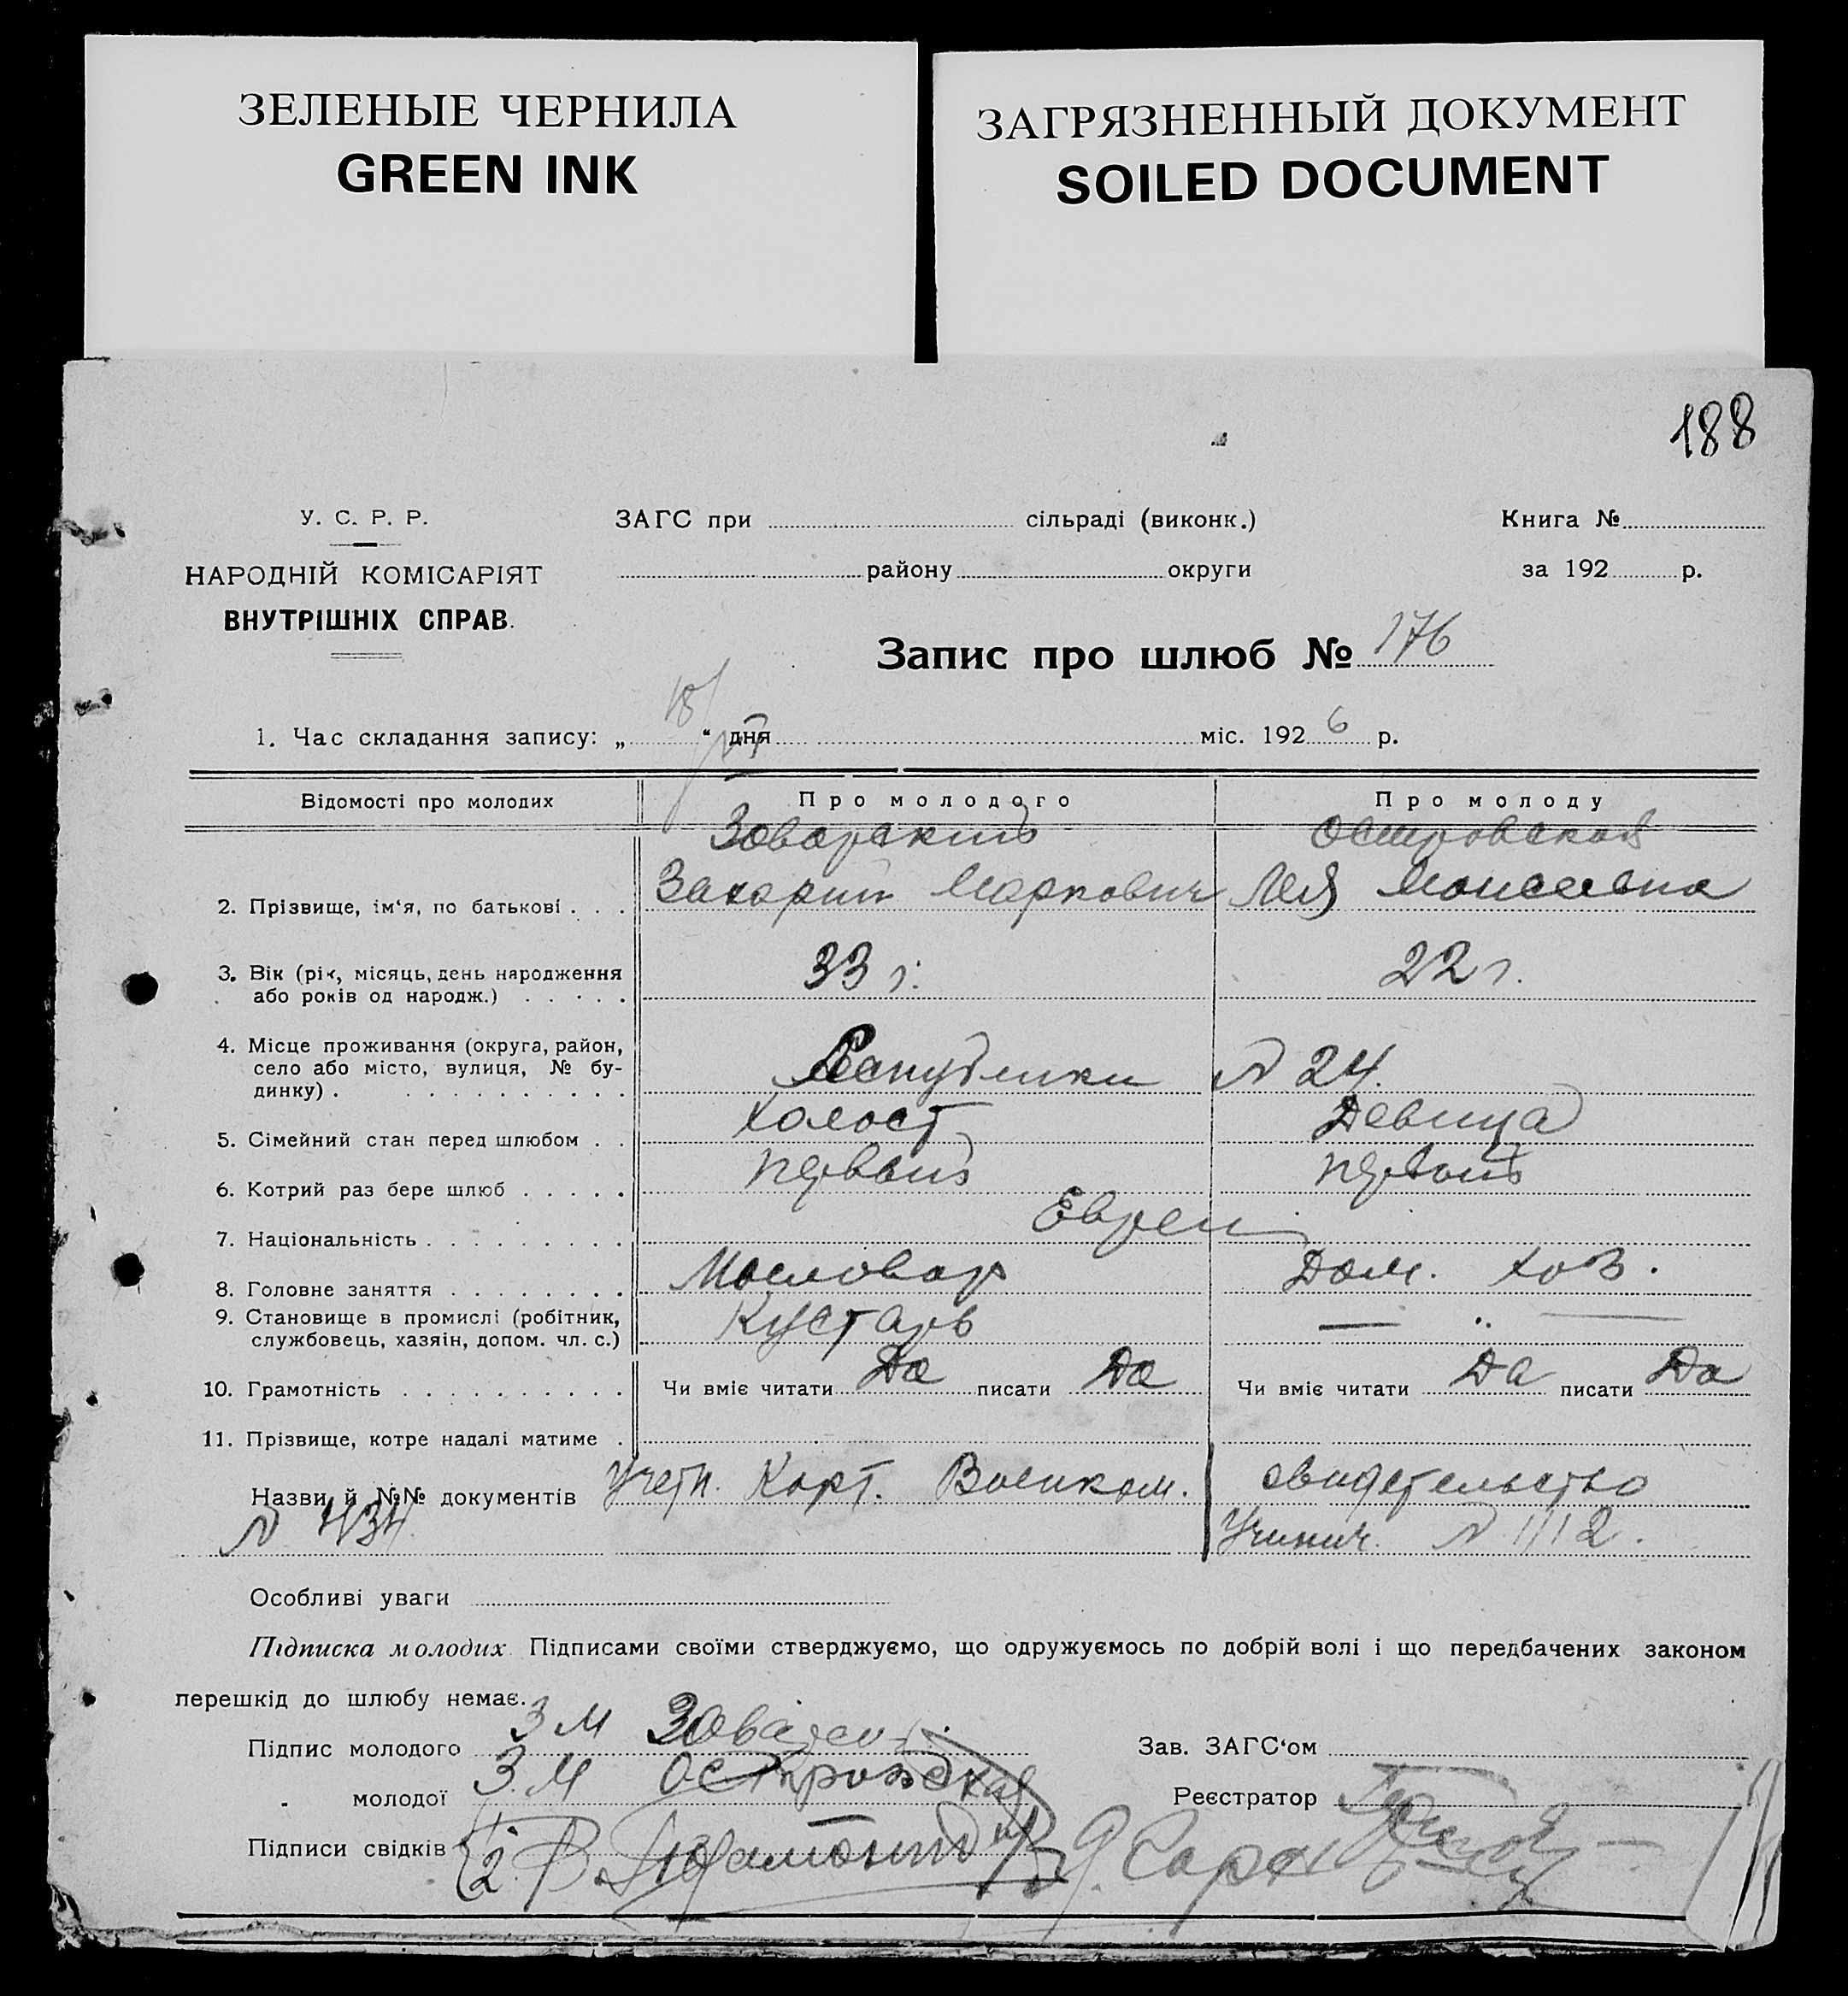 ЗЕЛЕНЫЕ ЧЕРНИЛА
GREEN INK
ЗАГРЯЗНЕННЫЙ ДОКУМЕНТ
SOILED DOCUMENT
188
У. С. Р. Р.
НАРОДНІЙ КОМІСАРІЯТ
ВНУТРІШНІХ СПРАВ.
ЗАГС при сільраді (виконк.)
району округи
Книга №
за 192 р.
Запис про шлюб № 176
1. Час складання запису: „ 18/VI “ дня міс. 1926 р.
Відомості про молодих Про молодого Про молоду
Заварский Островская
2. Прізвище, ім‘я, по батькові . . . Захарий Маркович Лея Моисеевна
3. Вік (рік, місяць, день народження
або років од народж.) . . . . . 33 г. 22 г.
4. Місце проживання (округа, район,
село або місто, вулиця, № бу-
динку) . . . . . . . . . . . Республики № 24.
5. Сімейний стан перед шлюбом . . Холост Девица
6. Котрий раз бере шлюб . . . . . первый первый
7. Національність . . . . . . . . . Евреи
8. Головне заняття . . . . . . . . Масловар Дом. хоз.
9. Становище в промислі (робітник,
службовець, хазяїн, допом. чл. с.) Кустарь — „ —
10. Грамотність . . . . . . . . . . Чи вміє читати Да писати Да Чи вміє читати Да писати Да
11. Прізвище, котре надалі матиме .
Назви й №№ документів Учетн. Карт. Военком. свидетельство
№ 434 № 1112.
Особливі уваги
Підписка молодих Підписами своїми стверджуємо, що одружуємось по добрій волі і що передбачених законом
перешкід до шлюбу немає.
Підпис молодого З М
Зав. ЗАГС‘ом
молодої З. М Островская
Реєстратор
Підписи свідків 1. 2.